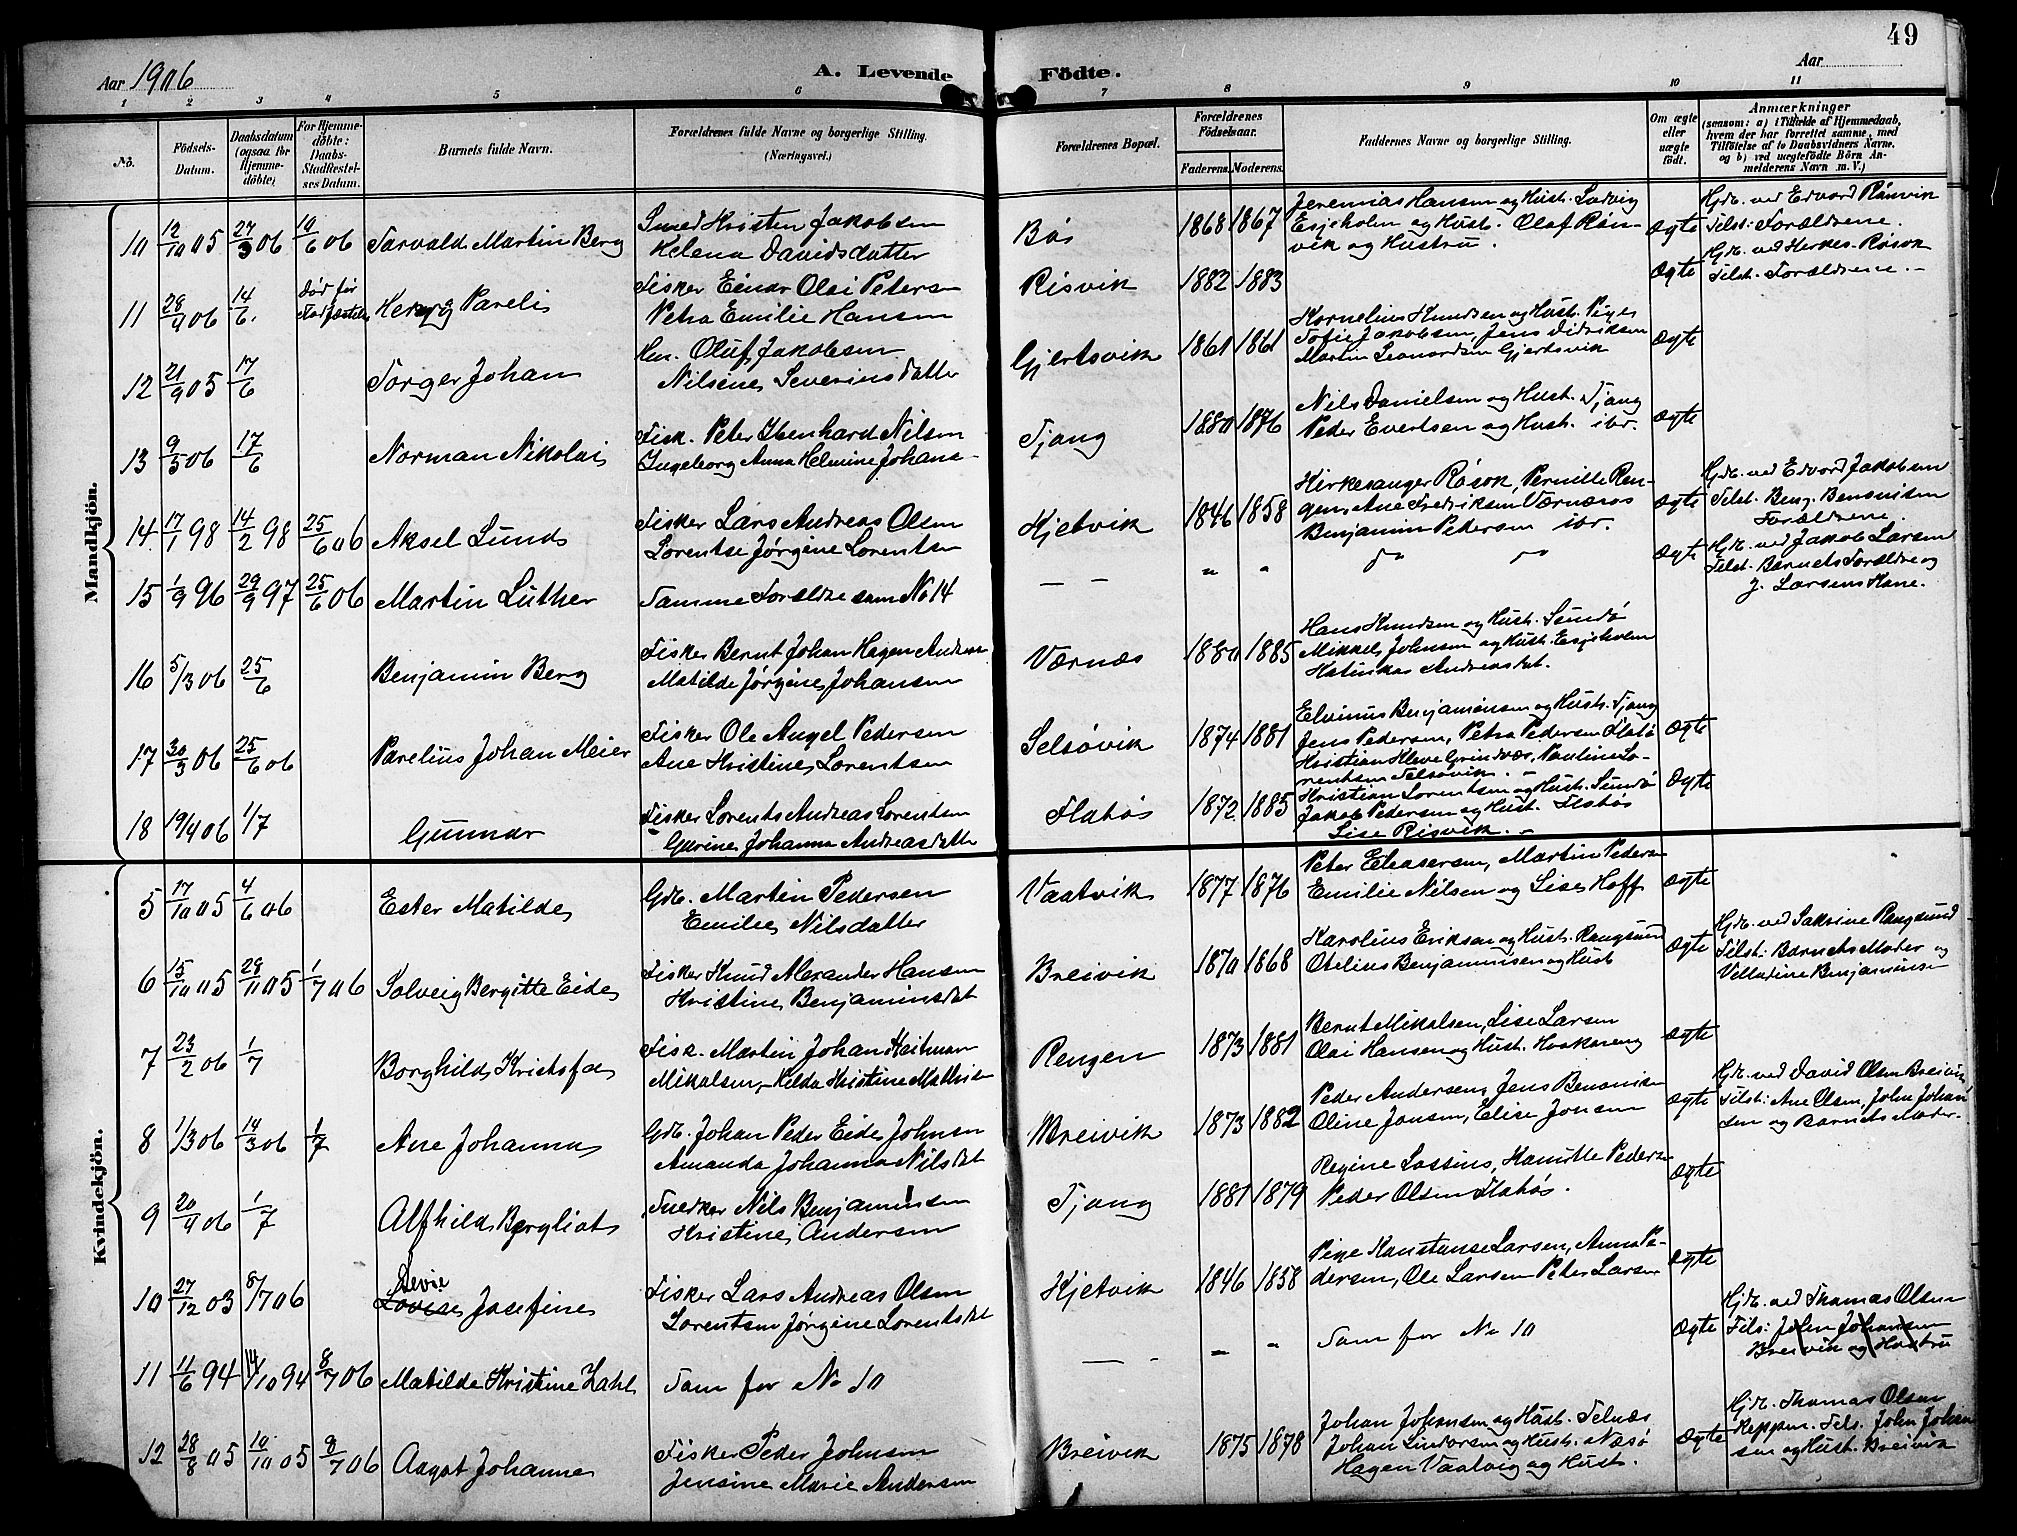 49
Aar 1906
A. Levende Födte.
Aar
1 2 3 4 5 6 7 8 9 10 11
No.
Födsels-Datum.
Daabsdatum (ogsaa for Hjemme-döbte)
For Hjemme-döbte: Daabs-Stadfæstel-ses Datum.
Barnets fulde Navn.
Forældrenes fulde Navne og borgerlige Stilling.
(Næringsvei.)
Forældrenes Bopæl.
Forældrenes Födselsaar.
Faderens. Moderens.
Faddernes Navne og borgerlige Stilling.
Om ægte eller uægte födt.
Anmærkninger
(saasom: a) i Tilfælde af Hjemmedaab, hvem der har forrettet samme, med Tilföielse af to Daabsvidners Navne, og b) ved uægtefödte Börn An-melderens Navn m. V.)
Mandkjön.
10 12/10 05 27/3 06 10/6 06 Torvald Martin Berg
Smed Kristen Jakobsen
Helena Davidsdatter
Bøs 1868 1867
Jeremias Hansen og Hust. Ludvig
Esjeholm og Hust. Olaf Røn-
vik og Hustru.
Ægte
Hjd. ved Edvard Rønvik
Tilst. Forældrene.
11 28/4 06 14/6. Død før Stadfæstelse Parelis
Fisker Einar Olai Petersen
Petra Emilie Hansen
Risvik 1882 1883
Ægte
Hjd. ved Herkes-Røsok
Tilst. Forældrene. -
12 21/9 05 17/6 Torger Johan
Hm. Oluf Jakobsen
Nilsine Severinsdatter
Gjertsvik 1861 1861
Kornelius Knudsen og Hust. Pige
Sofie Jakobsen Jens Didriksen
Martin Leonardsen Gjertsvik
Ægte
13 9/3 06 17/6 Norman Nikolai
Fisk. Peter Ibenhard Nilsen
Ingeborg Anna Helmine Johans-
Tjong 1880 1876
Nils Danielsen og Hust. Tjong
Peder Evertsen og Hust. ibr.
Ægte
14. 17/1 98 14/2 98 25/6 06 Aksel Lund
Fisker Lars Andreas Olsen
Lorentse Jørgine Lorentsen
Kjetvik 1846 1858
Kirkesanger Røsok, Pernille Ren-
gen, Ane Fredriksen Værnæs
Benjamin Petersen ibr.
Ægte
Hjd. ved Edvard Jakobsen
Tilst. Benj. Bensnisen
Forældrene.
15 1/9 96 29/9 97 25/6 06 Martin Luther
Samme Forældre som No 14
— — " "
do do
Ægte
Hjd. ved Jakob Larsen
Tilst. Barnets Forældre og
J. Larsens Kone.
16 5/3 06 25/6 Benjamin Berg
Fisker Bernt Johan Hagen Andersen
Matilde Jørgine Johansen
Værnæs 1880 1885
Hans Knudsen og Hust. Sundø
Mikkel Johnsen og Hust. Esjeholm
Hatinka Andreasdat.
17 30/3 06 25/6 06 Parelius Johan Meier
Fisker Ole Angel Pedersen
Ane Kristine Lorentsen
Selsøvik 1874 1881
Elvinus Benjaminsen og Hust. Tjong
Jens Pedersen, Petra Pedersen Flatø
Kristian Kleve Grindvær, Pauline Lo-
rentsen Selsøvik. -
Ægte
18 19/4 06 1/7 Gunnar
Fisker Lorents Andreas Lorentsen
Gurine Johanna Andreasdatter
Flatøs 1872 1885
Kristian Lorentsen og Hust. Sundø
Jakob Pedersen og Hust. Flatøs
Lise Risvik. -
Ægte
Kvindekjön.
5 17/10 05 4/6 06 Ester Matilde
Gdb. Martin Pedersen
Emilie Nilsdatter
Vaatvik 1877 1876
Peter Eleasersen, Martin Pedersen
Emilie Nilsen og Lise Hoff
Ægte
6 15/10 05 28/11 05 1/7 06 Solveig Bergitte Eide
Fisker Knud Alexander Hansen
Kristine Benjaminsdat
Breivik 1870 1868
Karolius Eriksen og Hust. Rangsund
Otelius Benjaminsen og Hust
Ægte
Hjd. ved Sakrine Rangsund
Tilst. Barnets Moder og
Villadine Benjaminsen
7 23/2 06 1/7 Borghild Kristofa
Fisk. Martin Johan Heitman
Mikalsen, - Hilda Kristine Mathisen
Rengen 1873 1881
Bernt Mikalsen, Lise Larsen
Olai Hansen og Hust. Haakøreng
Ægte
8 1/3 06 14/3 06 1/7 Ane Johanna
Gdb. Johan Peder Eide Johnsen
Amanda Johanna Nilsdat
Breivik 1873 1882
Peder Andersen, Jens Benonisen
Oline Jonsen, Elise Jonsen
Ægte
Hjd. ved David Olsen Breivik
Tilst: Ane Olsen, John Johan
sen og Barnets Moder.
9 20/4 06 1/7 Alfhild Bergliot
Snedker Nils Benjaminsen
Kristine Andersen
Tjong 1881 1879
Regine Lassius, Hanitte Pedersen
Peder Olsen Flatøs.
Ægte
10 27/12 03 8/7 06 Devie
Lovise Josefine
Fisker Lars Andreas Olsen
Lorentsen Jørgine Lorentsdat
Kjetvik 1846 1858
Pige Konstanse Larsen, Anna Pe-
dersen, Ole Larsen Peter Larsen
Ægte
11 11/6 94 14/10 94 8/7 06 Matilde Kristine Zahl
Som for No 10
— — " "
Som for No 10
Ægte
Hjd. ved Thomas Olsen
Tils: John Johansen
Breivik og Hustru
12 28/8 05 10/10 05 8/7 06 Aagot Johanne
Fisker Peder Johnsen
Jensine Marie Andersen
Breivik 1875 1878
Johan Johansen og Hust. Telnæs
Johan Lindorsen og Hust. Næsø
Hagen Vaatvig og Hust.
Ægte
Hjd. Thomas Olsen
Reppen. Tils. John Johan
sen og Hust. Breivik